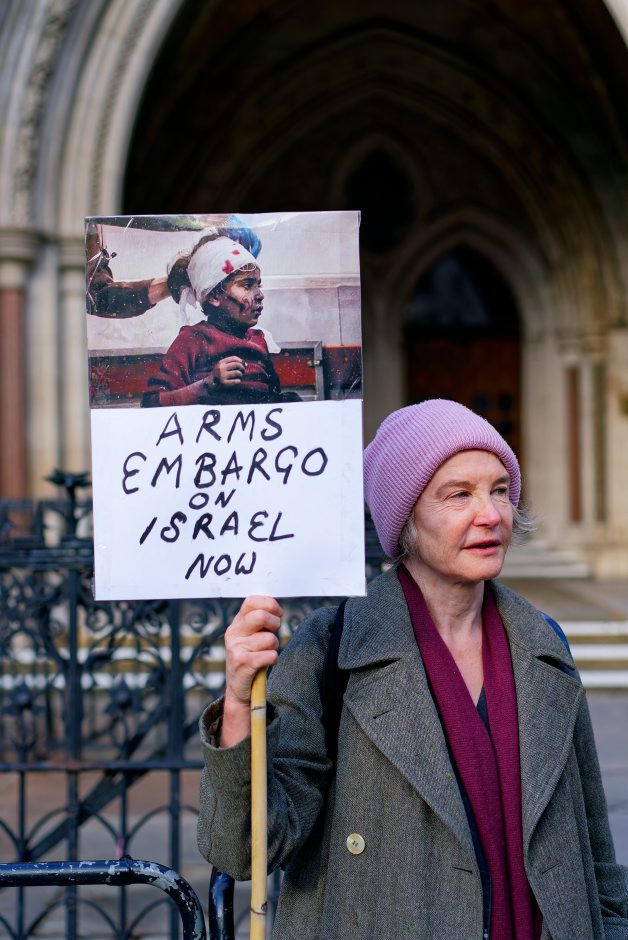 ARMS
EMBARGO
ON
ISRAEL
NOW